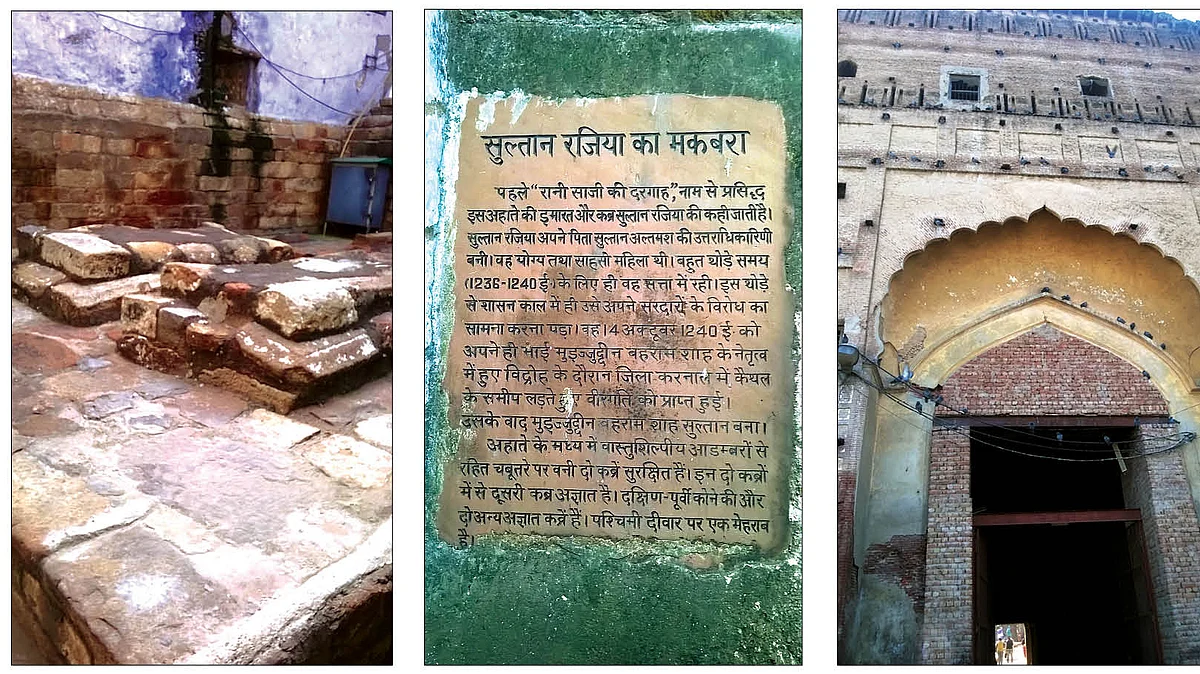 सुल्तान रजिया का मकबरा
पहले "रानी साजी की दरगाह", नाम से प्रसिद्ध
इस अहाते की इमारत और कब्र सुल्तान रजिया की कही जाती है।
सुल्तान रजिया अपने पिता सुल्तान अल्तमश की उत्तराधिकारिणी
बनी। वह योग्य तथा साहसी महिला थी। बहुत थोड़े समय
(1236-1240 ई.) के लिए ही वह सत्ता में रही। इस थोड़े
से शासन काल में ही उसे अपने सरदारों के विरोध का
सामना करना पड़ा। वह 14 अक्टूबर 1240 ई. को
अपने ही भाई मुइज्जुद्दीन बहराम शाह के नेतृत्व
में हुए विद्रोह के दौरान जिला करनाल में कैथल
के समीप लड़ते हुए वीरगति को प्राप्त हुई।
उसके बाद मुइज्जुद्दीन बहराम शाह सुल्तान बना।
अहाते के मध्य में वास्तुशिल्पीय आडम्बरों से
रहित चबूतरे पर बनी दो कब्रें सुरक्षित हैं। इन दो कब्रों
में से दूसरी कब्र अज्ञात है। दक्षिण-पूर्वी कोने की और
दो अन्य अज्ञात कब्रें हैं। पश्चिमी दीवार पर एक मेहराब
है।